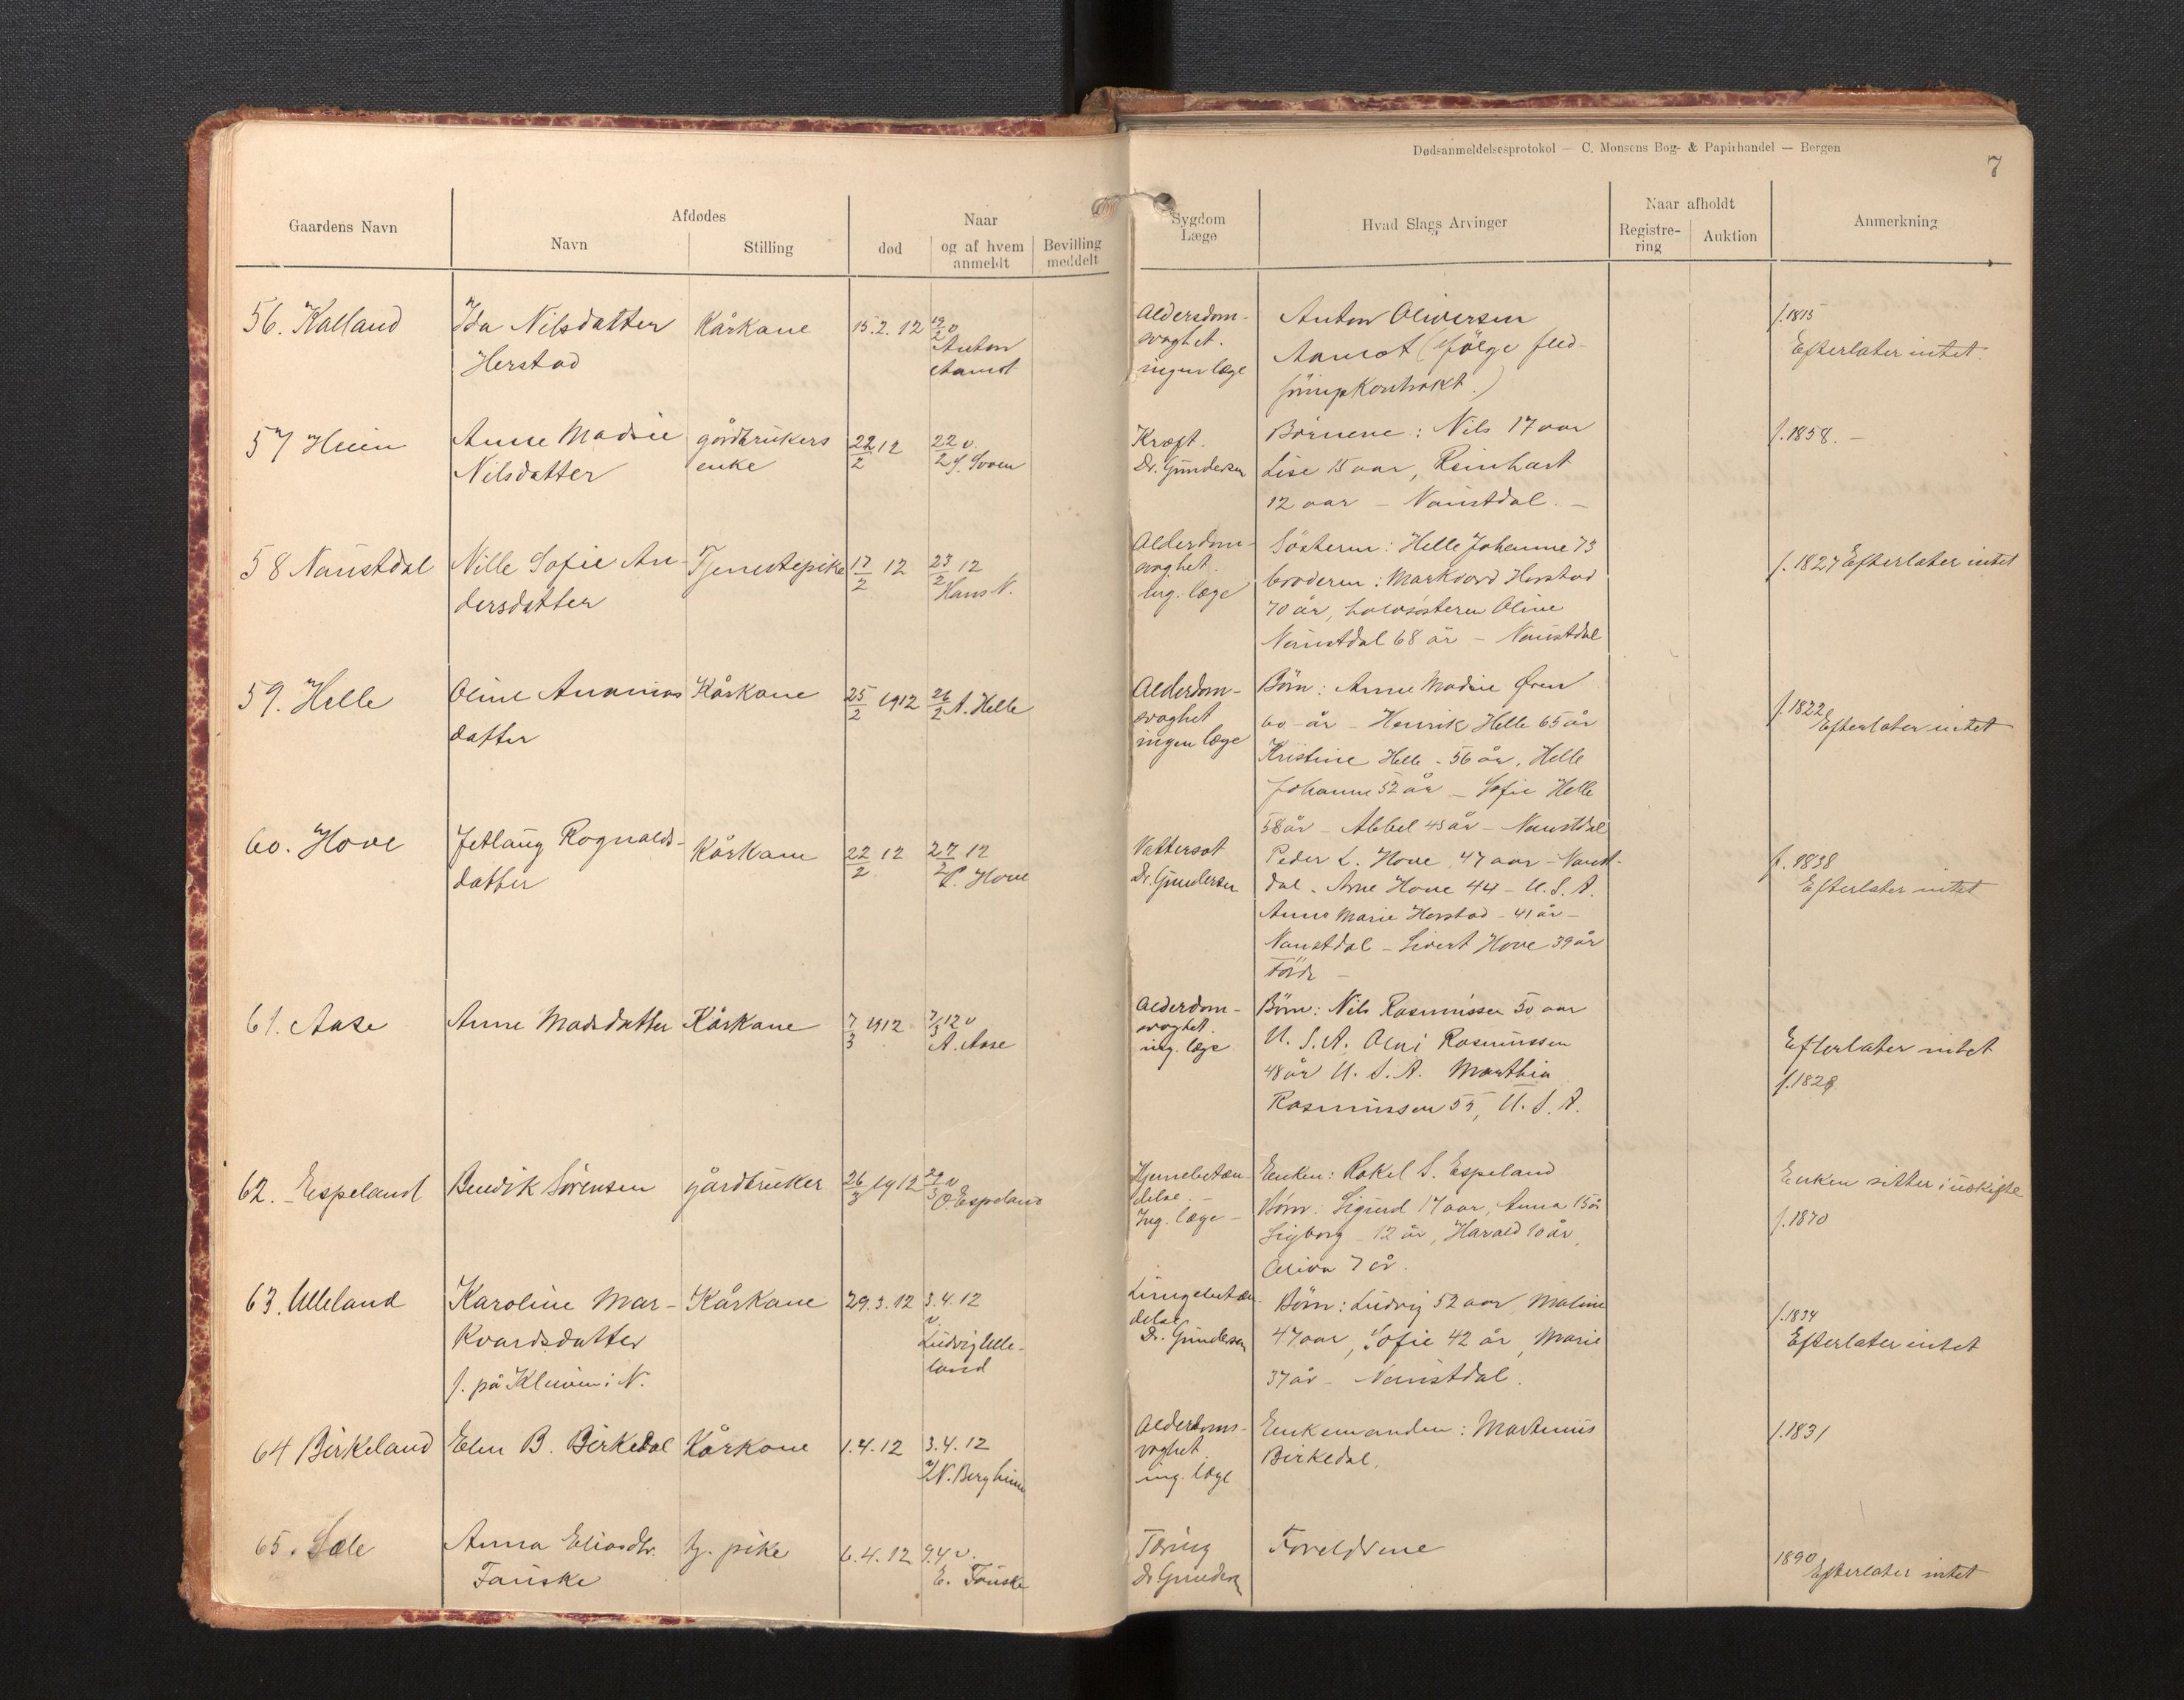 Dødsanmeldelsesprotokol — C. Monsens Bog- & Papirhandel — Bergen
7
Gaardens Navn
Afdødes
Navn
Stilling
Naar
død
og af hvem anmeldt
Bevilling meddelt
Sygdom
Læge
Hvad Slags Arvinger
Naar afholdt
Registrering
Auktion
Anmerkning
56. Kalland
Ida Nilsdatter
Herstad
Kårkone
15.2.12
19/2 v
Anton
Aamot
Aldersdom-
svaghet.
ingen læge
Anton Oliversen
Aamot (ifölge fled-
föringskontrakt.)
f. 1815
Efterlater intet.
57 Heien
Anne Madsine
Nilsdatter
gårdbrukers
enke
22/2 12
22/2 v.
Kræft.
Dr. Gundersen
Börnene: Nils 17 aar
Lise 15 aar, Reinhart
12 aar — Naustdal. —
f. 1858. —
58 Naustdal
Nille Sofie An-
dersdatter
Tjenestepike
17/2 12
23/2 12
Hans N.
Alderdom-
svaghet.
Ing. læge
Sösteren: Helle Johanne 73
broderen: Markvard Herstad
70 år, halvsösteren Oline
Naustdal 68 år — Naustdal
f. 1827 Efterlater intet
59. Helle
Oline Ananias
datter
Kårkone
25/2 1912
26/2 A. Helle
Alderdom-
svaghet
ingen læge
Börn: Anne Madsine Øren
60 år — Henrik Helle 65 år
Kristine Helle - 56 år, Helle
Johanne 52 år — Sofie Helle
58 år — Abbel 45 år — Naustdal
f. 1822
Efterlater intet
60. Hove
Jetlaug Rognalds-
datter
Kårkone
22/2 12
27/2 12
P. Hove
Vattersot
Dr. Gundersen
Peder L. Hove, 47 aar — Naust-
dal. Arne Hove 44 — U.S.A.
Anna Marie Herstad — 41 år —
Naustdal — Sivert Hove 39 år
Förde —
f. 1838
Efterlater intet
61. Aase
Anne Madsdatter
Kårkone
7/3 1912
7/3 12 v
A. Aase
Alderdom-
svaghet.
ing. læge
Börn: Nils Rasmussen 50 aar
U.S.A. Olai Rasmussen
48 år U.S.A. Marthia
Rasmussen 55, U.S.A.
Efterlater intet
f. 1828.
62. Espeland
Bendik Sörensen
gårdbruker
26/3 1912
29/3 v
O. Espeland
Hjernebetæn-
delse. —
Ing. læge —
Enken: Rakel S. Espeland
Börn: Sigurd 17 aar, Anna 15 år
Sigborg — 12 år, Harald 10 år,
Oliva 7 år.
Enken sitter i uskifte
f. 1870
63. Ulleland
Karoline Mar-
kvardsdatter
f. på Kleiven i N.
Kårkone
29.3.12
3.4.12
v.
Ludvig Ulle-
land
Lungebetæn-
delse
Dr. Gundersen
Börn: Ludvig 52 aar, Maline
47 aar, Sofie 42 år, Marie
37 år — Naustdal.
f. 1834
Efterlater intet
64 Birkeland
Elen B. Birkedal
Kårkone
1.4.12
3.4.12
v/ N. Bergheim
Alderdoms-
svaghet.
ing. læge
Enkemanden: Martinus
Birkedal.
f. 1831
65. Sæle
Anna Eliasdtr.
Fauske
tj. pike
6.4.12
9.4 v.
E. Fauske
Tæring
Dr Gundersen
Foreldrene
1890
Efterlater intet